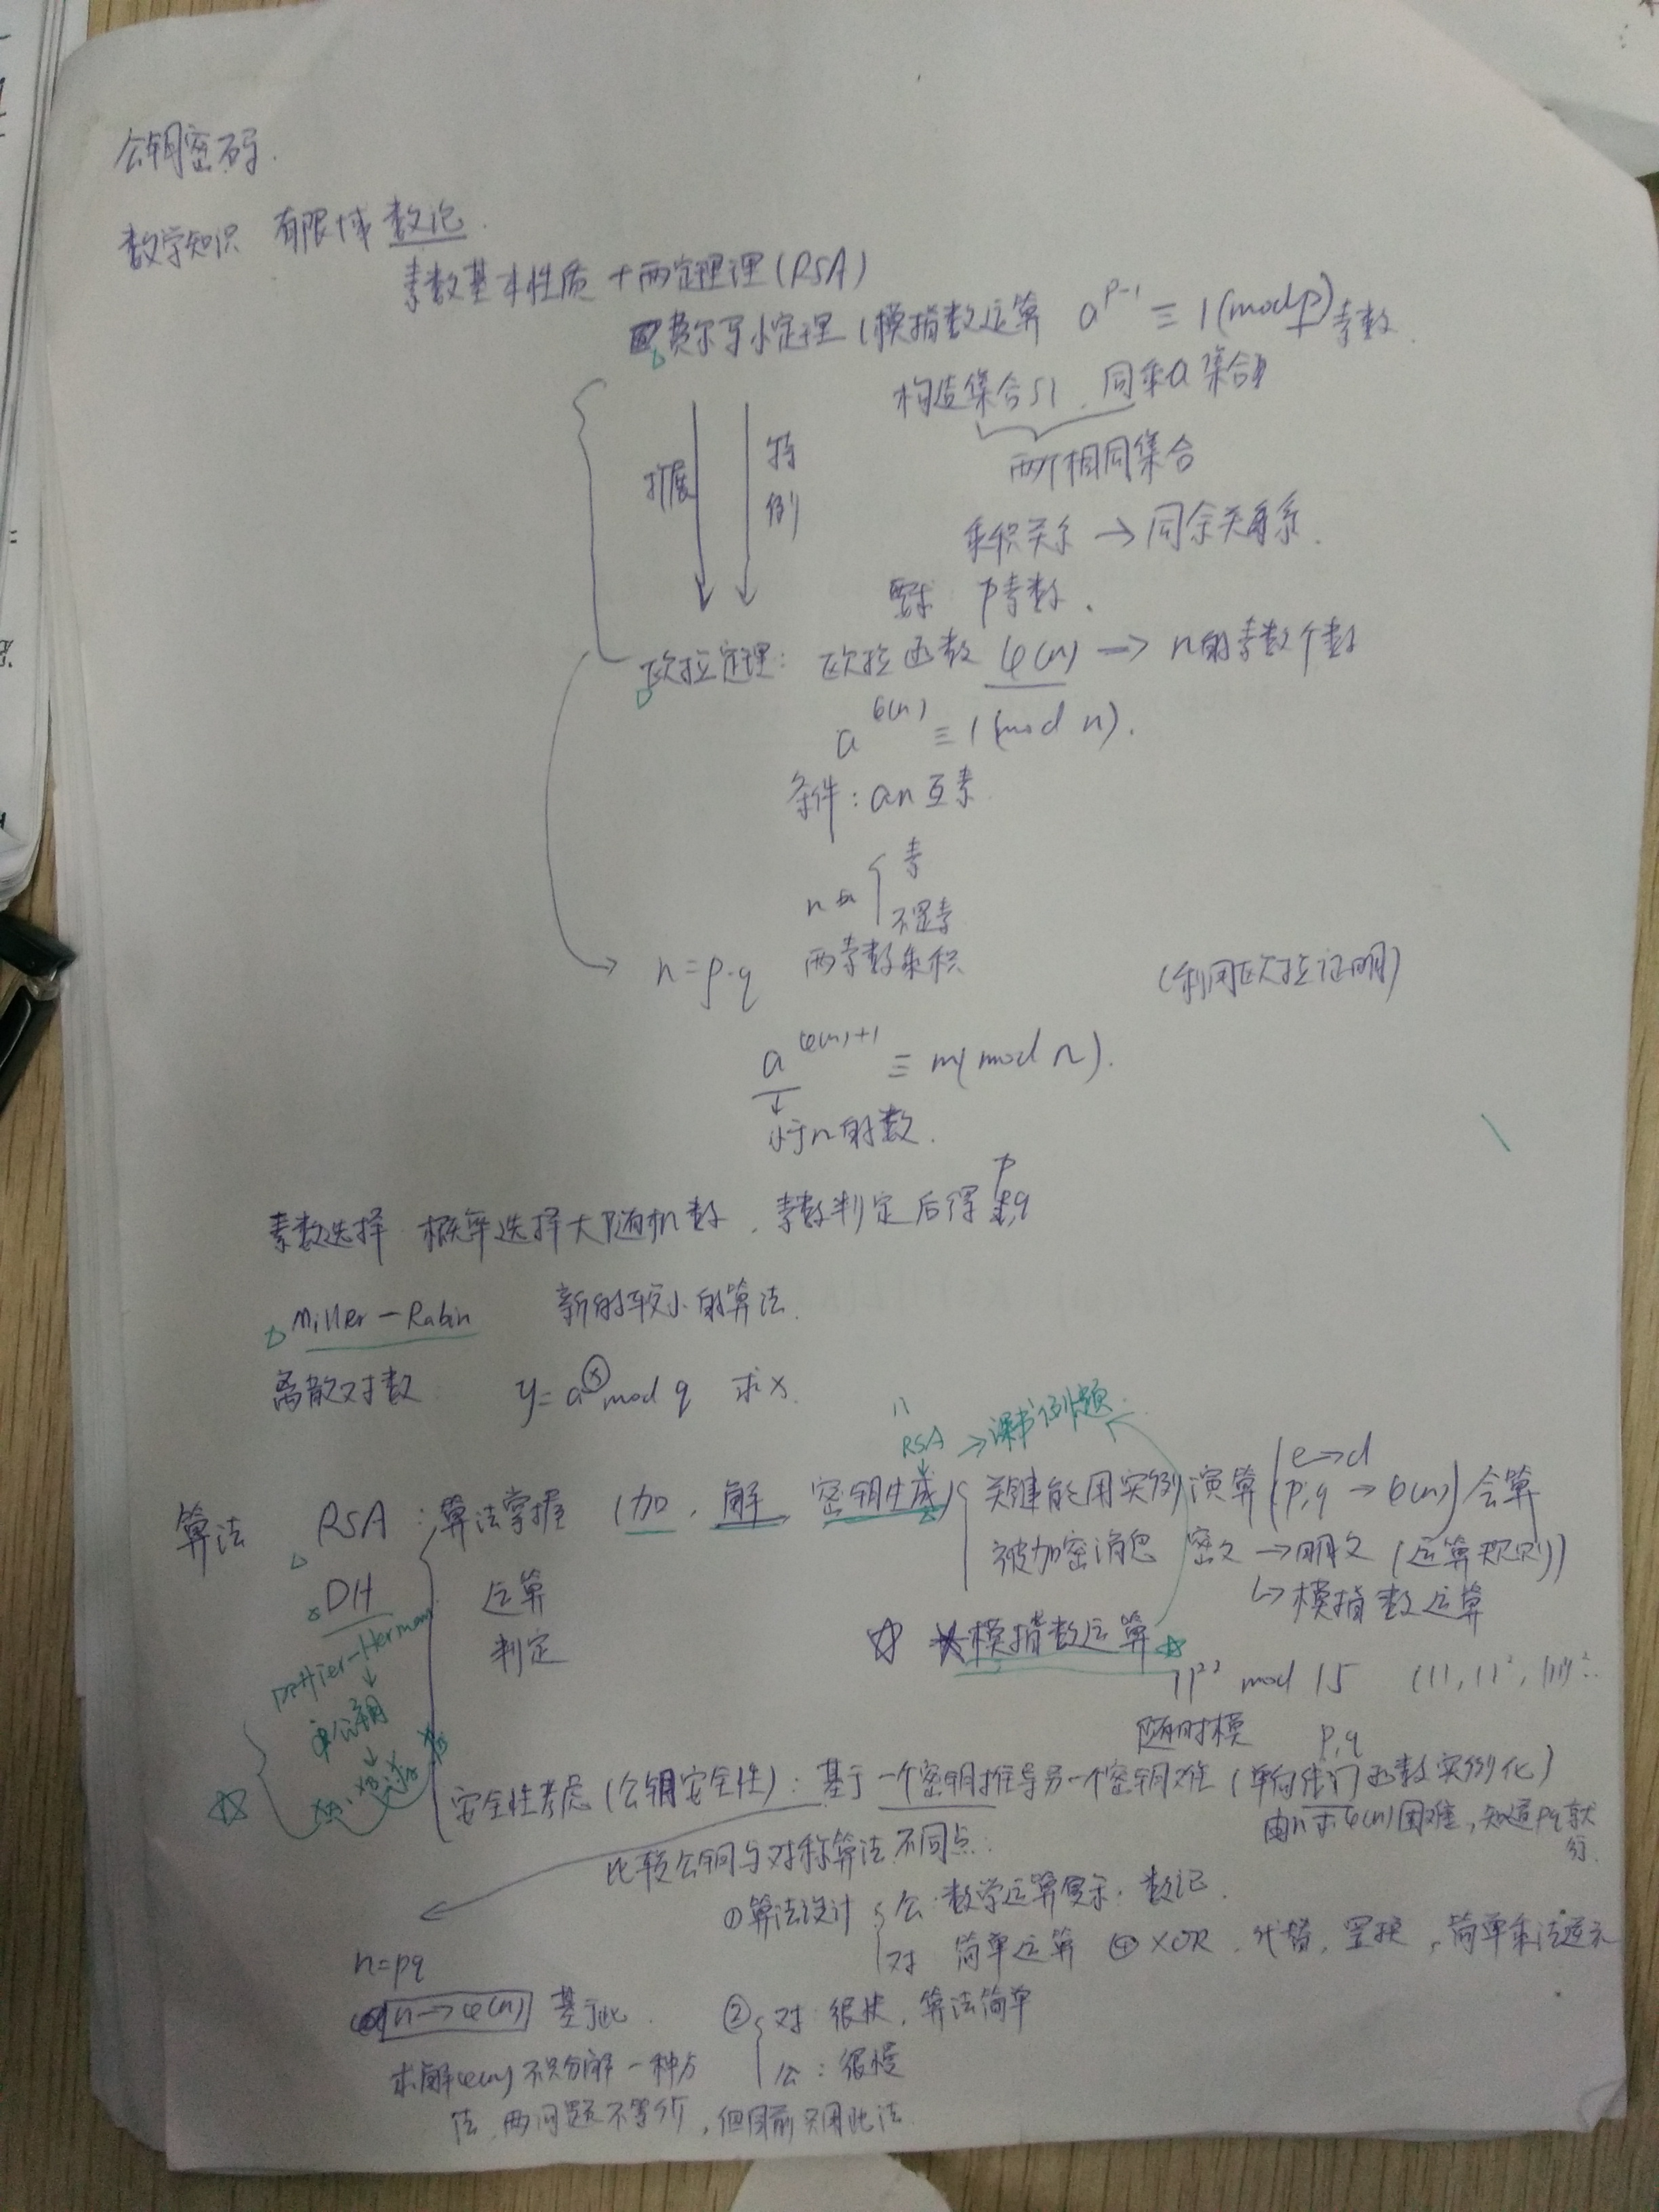 公钥密码.
数学知识 有限域 数论.
素数基本性质 + 两定理(RSA)
费尔马小定理 (模指数运算 a^{p-1} ≡ 1 (mod p) 素数.
构造集合S1. 同乘a 集合
两个相同集合
乘积关系 → 同余关系.
要求 p素数.
扩展
特例
欧拉定理: 欧拉函数 φ(n) → n的素数个数
a^{φ(n)} ≡ 1 (mod n).
条件: a n 互素
n { 素
不是素
n = p·q 两素数乘积 (利用欧拉证明)
a^{φ(n)+1} ≡ m (mod n).
↓
小于n的数.
素数选择 概率选择大随机数. 素数判定后得 p,q
Miller-Rabin 新的较小的算法.
离散对数 y = a^x mod q 求x.
RSA → 课书例题.
算法 RSA: 算法掌握 (加, 解, 密钥生成) { 关键能用实例演算 (e→d p,q → φ(n)) 会算
被加密消息 密文 → 明文 (运算规则)
↳ 模指数运算
DH 运算
判定
☆ ★ 模指数运算 ☆
11^{23} mod 15
随时模 p,q
安全性考虑 (公钥安全性): 基于一个密钥推导另一个密钥难 (单向陷门函数实例化)
由n求φ(n)困难, 知道pq就行.
比较公钥与对称算法不同点:
① 算法设计 { 公: 数学运算 数论.
对 简单运算 ⊕ XOR. 代替, 置换, 简单乘法
n=pq
n → φ(n) 基于此. ② { 对 很快, 算法简单
公: 很慢
求解φ(n) 不只分解一种方
法, 两问题不等价, 但目前只用此法.